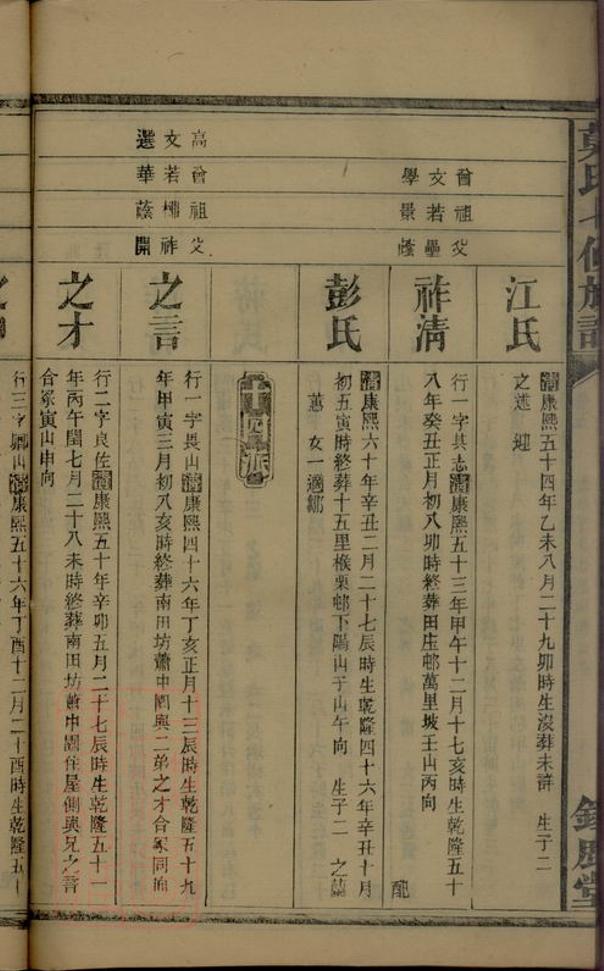 氏七修族譜
江氏
清康熙五十四年乙未八月二十九卯時生沒葬未詳 生子二
之蓮 迎
曾祖父
文若壘
學景
祚清
行一字其志清康熙五十三年甲午十二月十七亥時生乾隆五十
八年癸丑正月初八卯時終葬田庄邨萬里坡壬山丙向 配
彭氏
清康熙六十年辛丑二月二十七辰時生乾隆四十六年辛丑十月
初五寅時終葬十五里㮋栗邨下陽山子山午向 生子二 之蘭
蕙 女一適鄒
十四派
高曾祖父
文若 祚
選華蔭開
之言
行一字畏山清康熙四十六年丁亥正月十三辰時生乾隆五十九
年甲寅三月初八亥時終葬南田坊蕭中園與二弟之才合冢同向
之才
行二字良佐清康熙五十年辛卯五月二十七辰時生乾隆五十一
年丙午閏七月二十八未時終葬南田坊蕭中園住屋側與兄之言
合冢寅山申向
行三字 山清康熙五十六年丁酉十二月二十酉時生乾隆五十